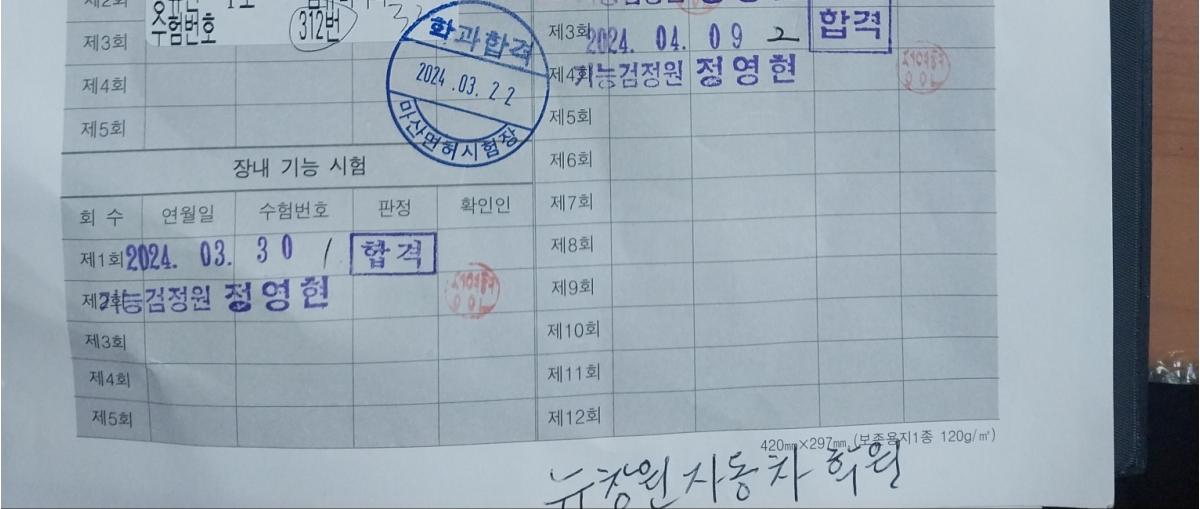 제2회
수험번호 312번
제3회
제4회
제5회
학과합격
2024.03.22
마산면허시험장
장내 기능 시험
회 수 연월일 수험번호 판정 확인인
제1회 2024. 03. 30 / 합격
제2회 기능검정원 정영현
제3회
제4회
제5회
제3회 2024. 04. 09 2 합격
제4회 기능검정원 정영현
제5회
제6회
제7회
제8회
제9회
제10회
제11회
제12회
420㎜×297㎜ (보존용지1종 120g/㎡)
뉴창원자동차 학원